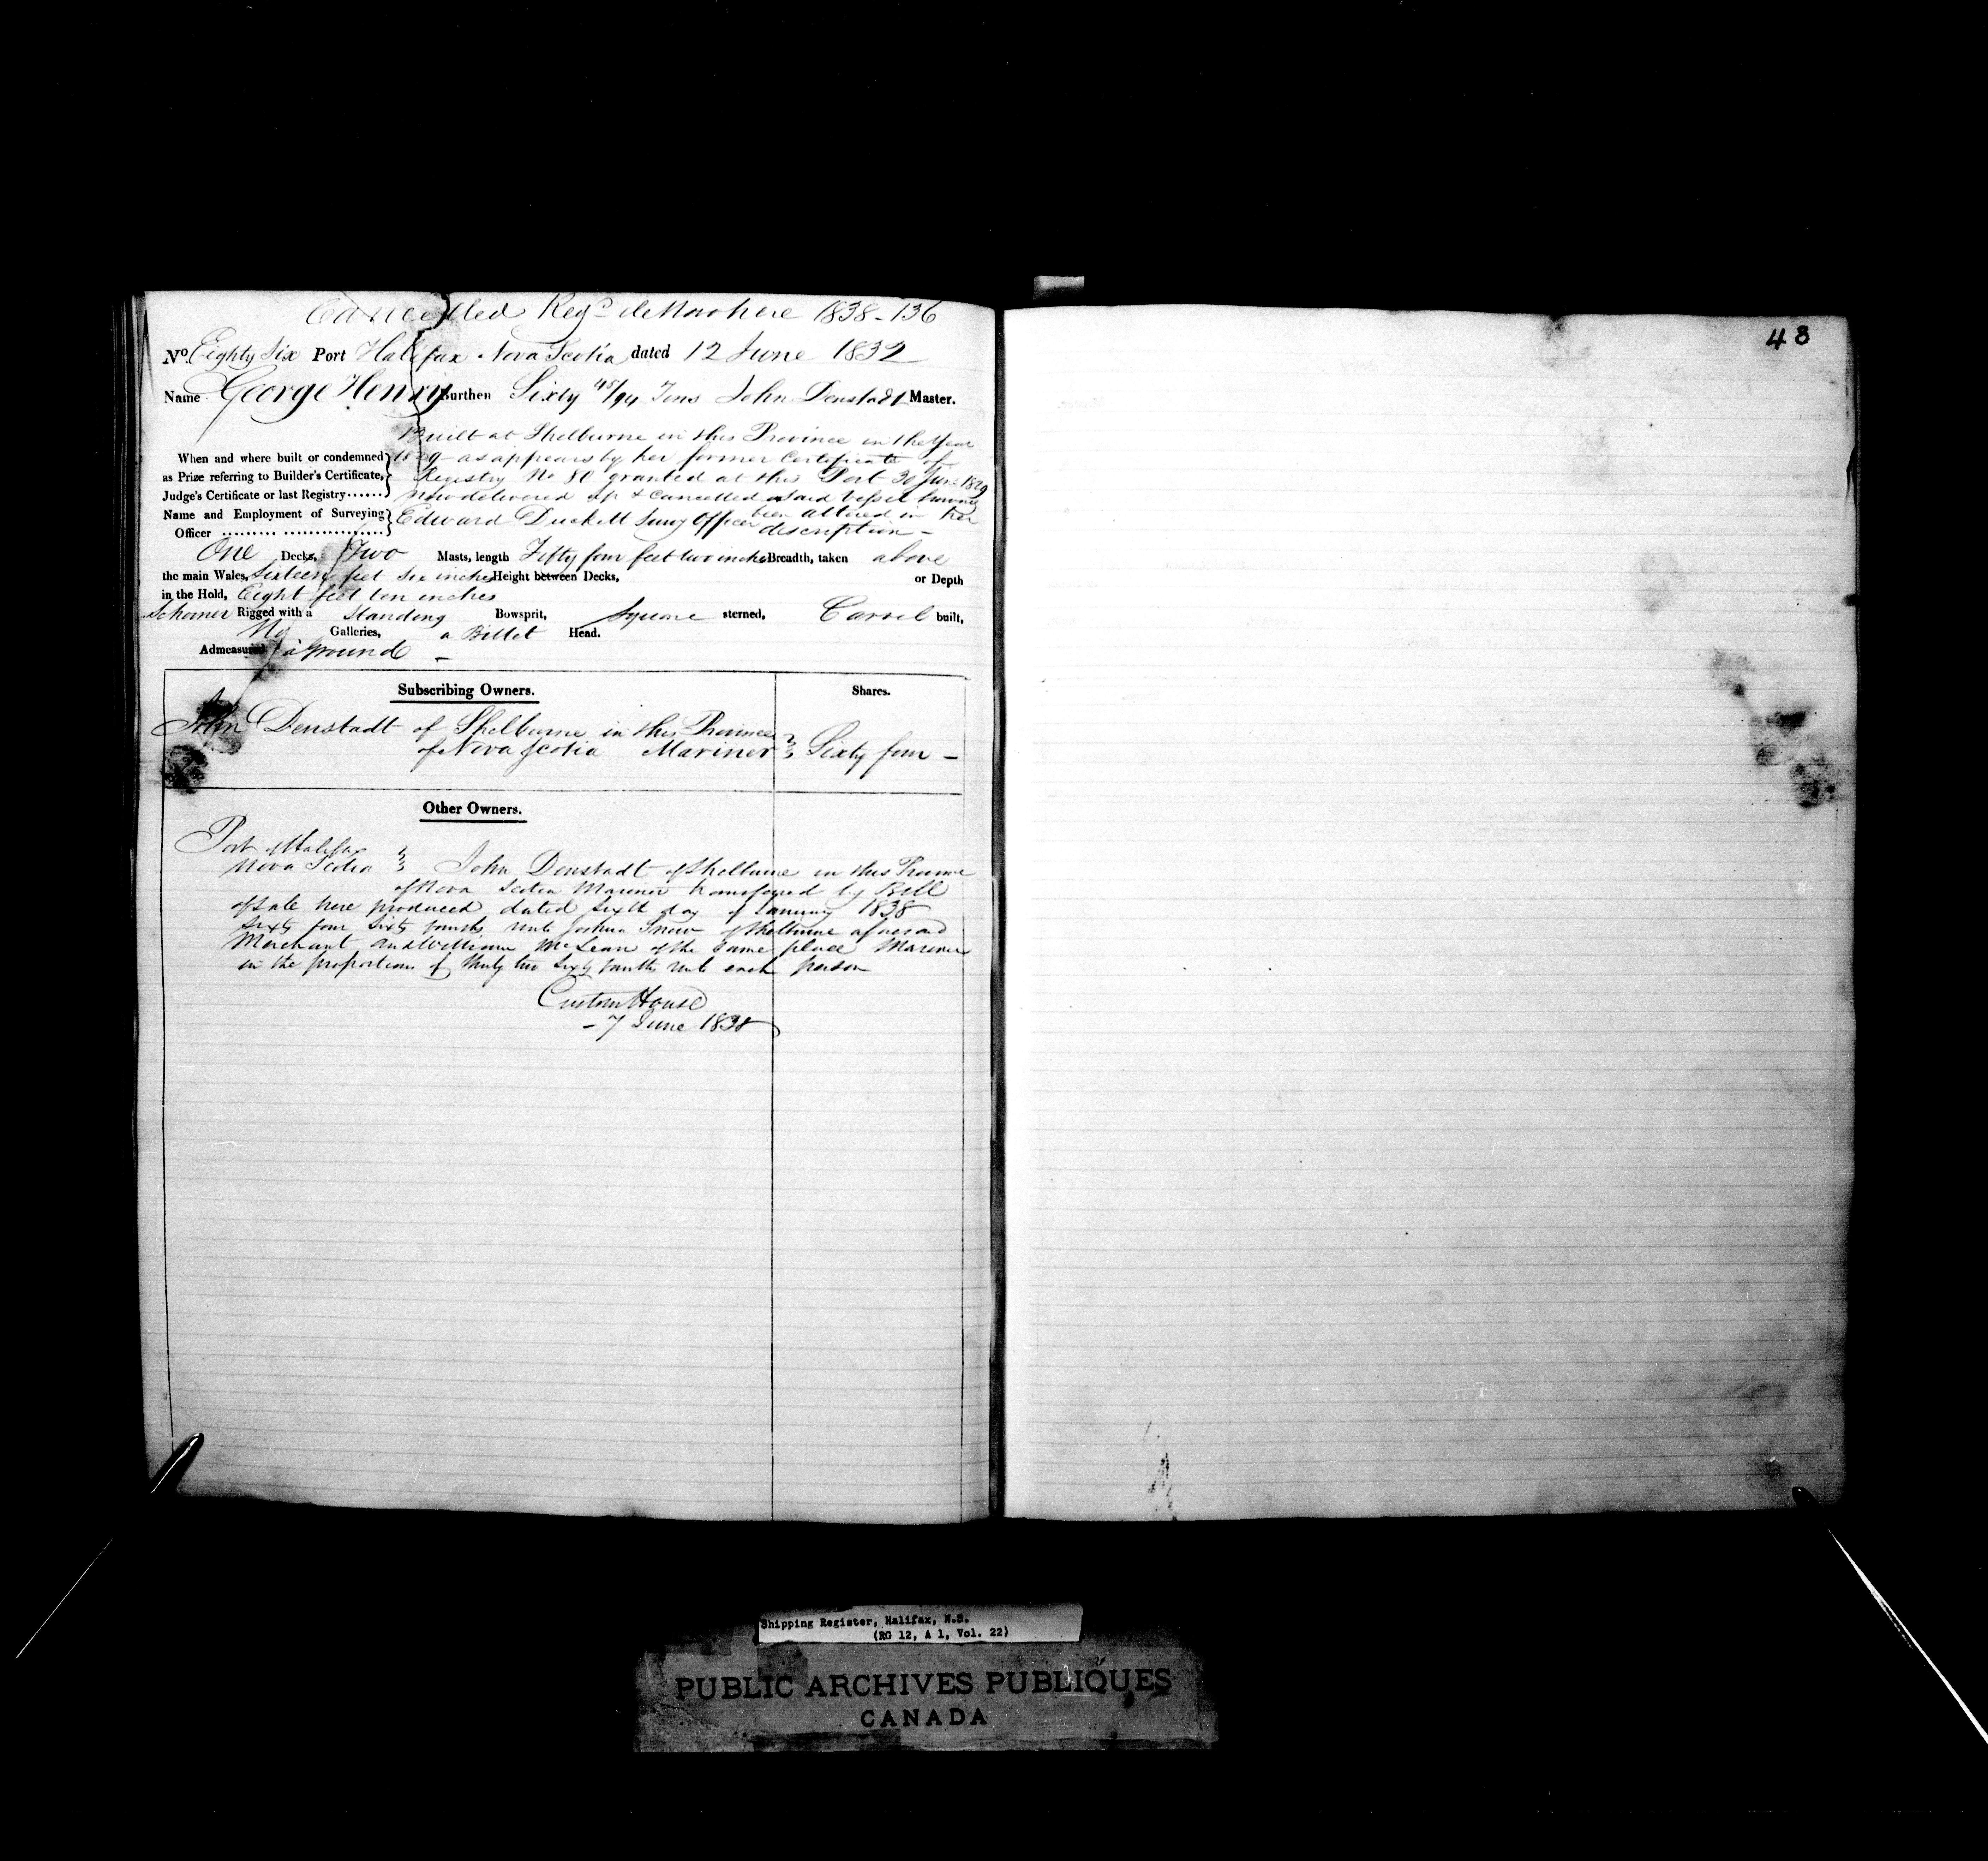 Cancelled Reg^d de Novo here 1838 - 136
No. Eighty Six Port Halifax Nova Scotia dated 12 June 1832
Name George Henry Burthen Sixty 45/94 Tons John Denstadt Master.
Built at Shelburne in this Province in the Year
When and where built or condemned 1829 as appears by her former Certificate of
as Prize referring to Builder's Certificate, Registry No 80 granted at this Port 30 June 1829
Judge's Certificate or last Registry...... now delivered up & Cancelled said Vessel having
Name and Employment of Surveying Edward Duckett Surv'g Officer been altered in her
Officer ......... ............... description -
One Decks, Two Masts, length Fifty four feet two inches Breadth, taken above
the main Wales, Sixteen feet Six inches Height between Decks, or Depth
in the Hold, Eight feet ten inches
Schooner Rigged with a Standing Bowsprit, Square sterned, Carvel built,
No Galleries, a Billet Head.
Admeasured aground -
Subscribing Owners. Shares.
John Denstadt of Shelburne in this Province
of Nova Scotia Mariner Sixty four -
Other Owners.
Port of Halifax
Nova Scotia John Denstadt of Shelburne in this Province
of Nova Scotia Mariner transferred by Bill
of Sale here produced dated Sixth day of January 1838
Sixty four Sixty fourths unto Joshua Snow of Shelburne aforesaid
Merchant and William McLean of the Same place Mariner
in the proportions of thirty two Sixty fourths unto each person
Custom House
- 7 June 1838
48
Shipping Register, Halifax, N.S.
(RG 12, A 1, Vol. 22)
PUBLIC ARCHIVES PUBLIQUES
CANADA